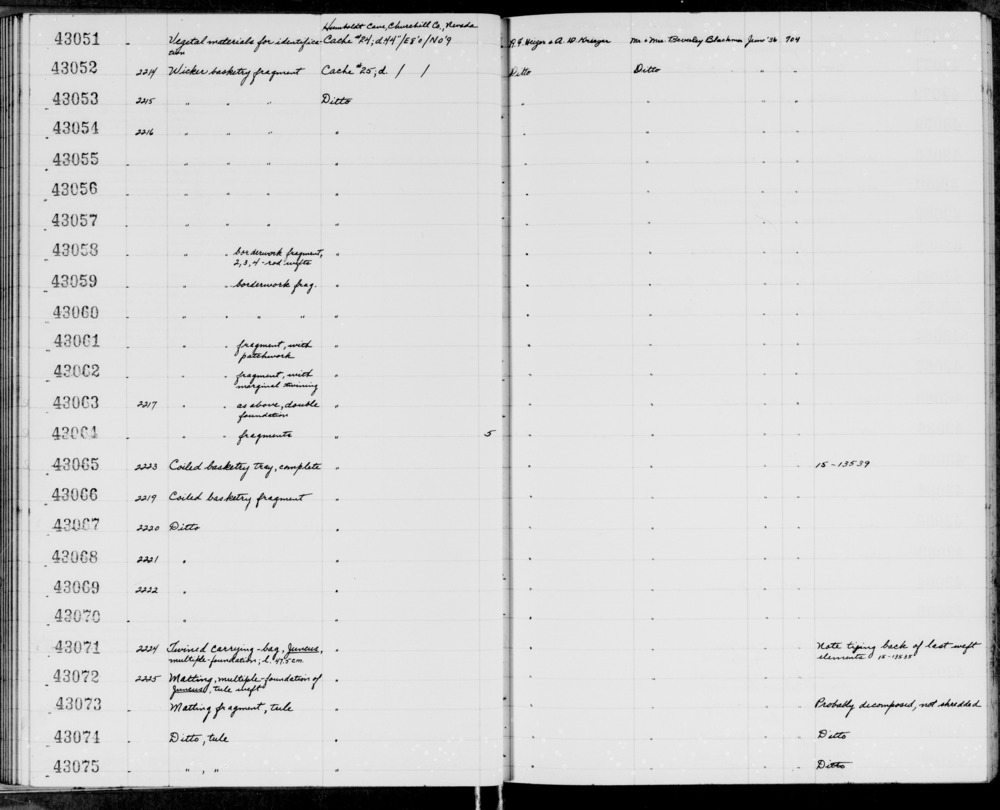 Humboldt Cave, Churchill Co, Nevada
43051 Vegetal materials for identifica- Cache #24; d.44"/E8'0/N0'9 R.F. Heizer & A. D. Krieger Mr. & Mrs. Beverley Blackmer June '36 704
tion
43052 2214 Wicker basketry fragment Cache #25; d. / / Ditto Ditto
43053 2215 " " " Ditto
43054 2216 " " " "
43055 " " " "
43056 " " " "
43057 " " " "
43058 " " borderwork fragment, "
2, 3, 4-rod wefts
43059 " " borderwork frag. "
43060 " " " " "
43061 " " fragment, with "
patchwork
43062 " " fragment, with "
marginal twining
43063 2217 " " as above, double "
foundation
43064 " " fragments " 5
43065 2223 Coiled basketry tray, complete " 15-13539
43066 2219 Coiled basketry fragment "
43067 2220 Ditto "
43068 2221 " "
43069 2222 " "
43070 " "
43071 2224 Twined carrying-bag, Juncus, " Note tying back of last weft
multiple-foundation; l. 47.5 cm. elements 15-13535
43072 2225 Matting, multiple-foundation of "
Juncus, tule weft
43073 Matting fragment, tule " Probably decomposed, not shredded
43074 Ditto, tule " Ditto
43075 " , " " Ditto